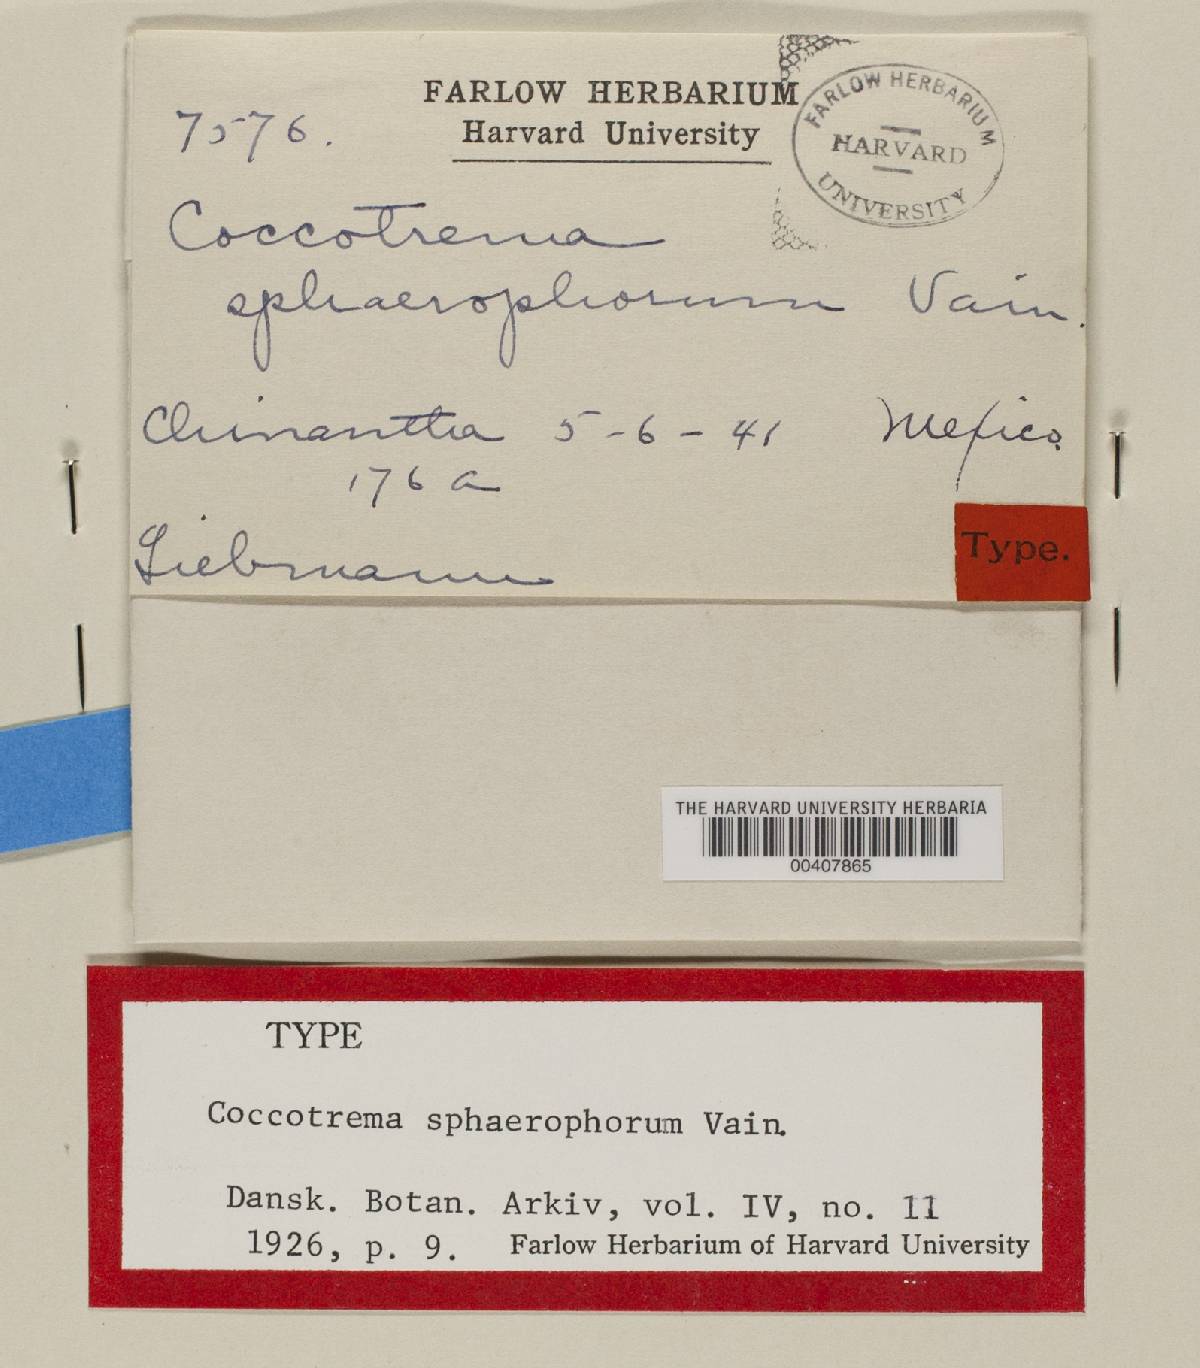 FARLOW HERBARIUM
Harvard University
FARLOW HERBARIUM
HARVARD
UNIVERSITY
7576.
Coccotrema
sphaerophorum Vain.
Chinantla 5-6-41 Mexico.
176 a
Liebmann
Type.
THE HARVARD UNIVERSITY HERBARIA
00407865
TYPE
Coccotrema sphaerophorum Vain.
Dansk. Botan. Arkiv, vol. IV, no. 11
1926, p. 9. Farlow Herbarium of Harvard University